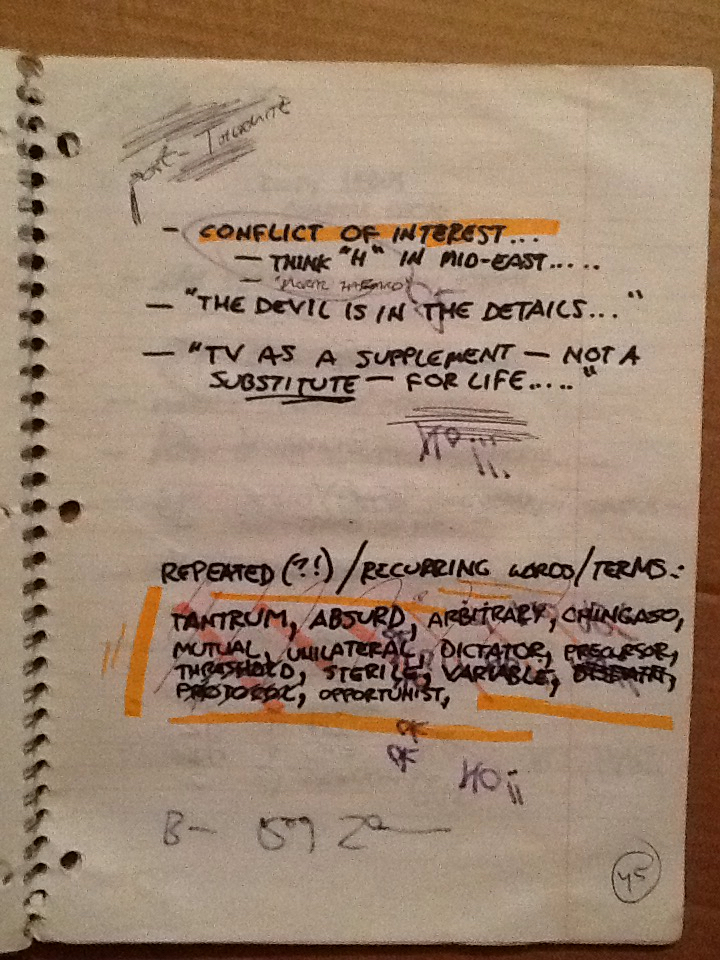 - CONFLICT OF INTEREST...
- THINK "H" IN MID-EAST.....
- "THE DEVIL IS IN THE DETAILS..."
- "TV AS A SUPPLEMENT - NOT A
SUBSTITUTE - FOR LIFE....."
HO ¡¡
REPEATED (?!) / RECURRING WORDS/TERMS:
TANTRUM, ABSURD, ARBITRARY, CHINGASO,
MUTUAL, UNILATERAL, DICTATOR, PRECURSOR,
THRESHOLD, STERILE, VARIABLE,
OPPORTUNIST,
HO ¡¡
45